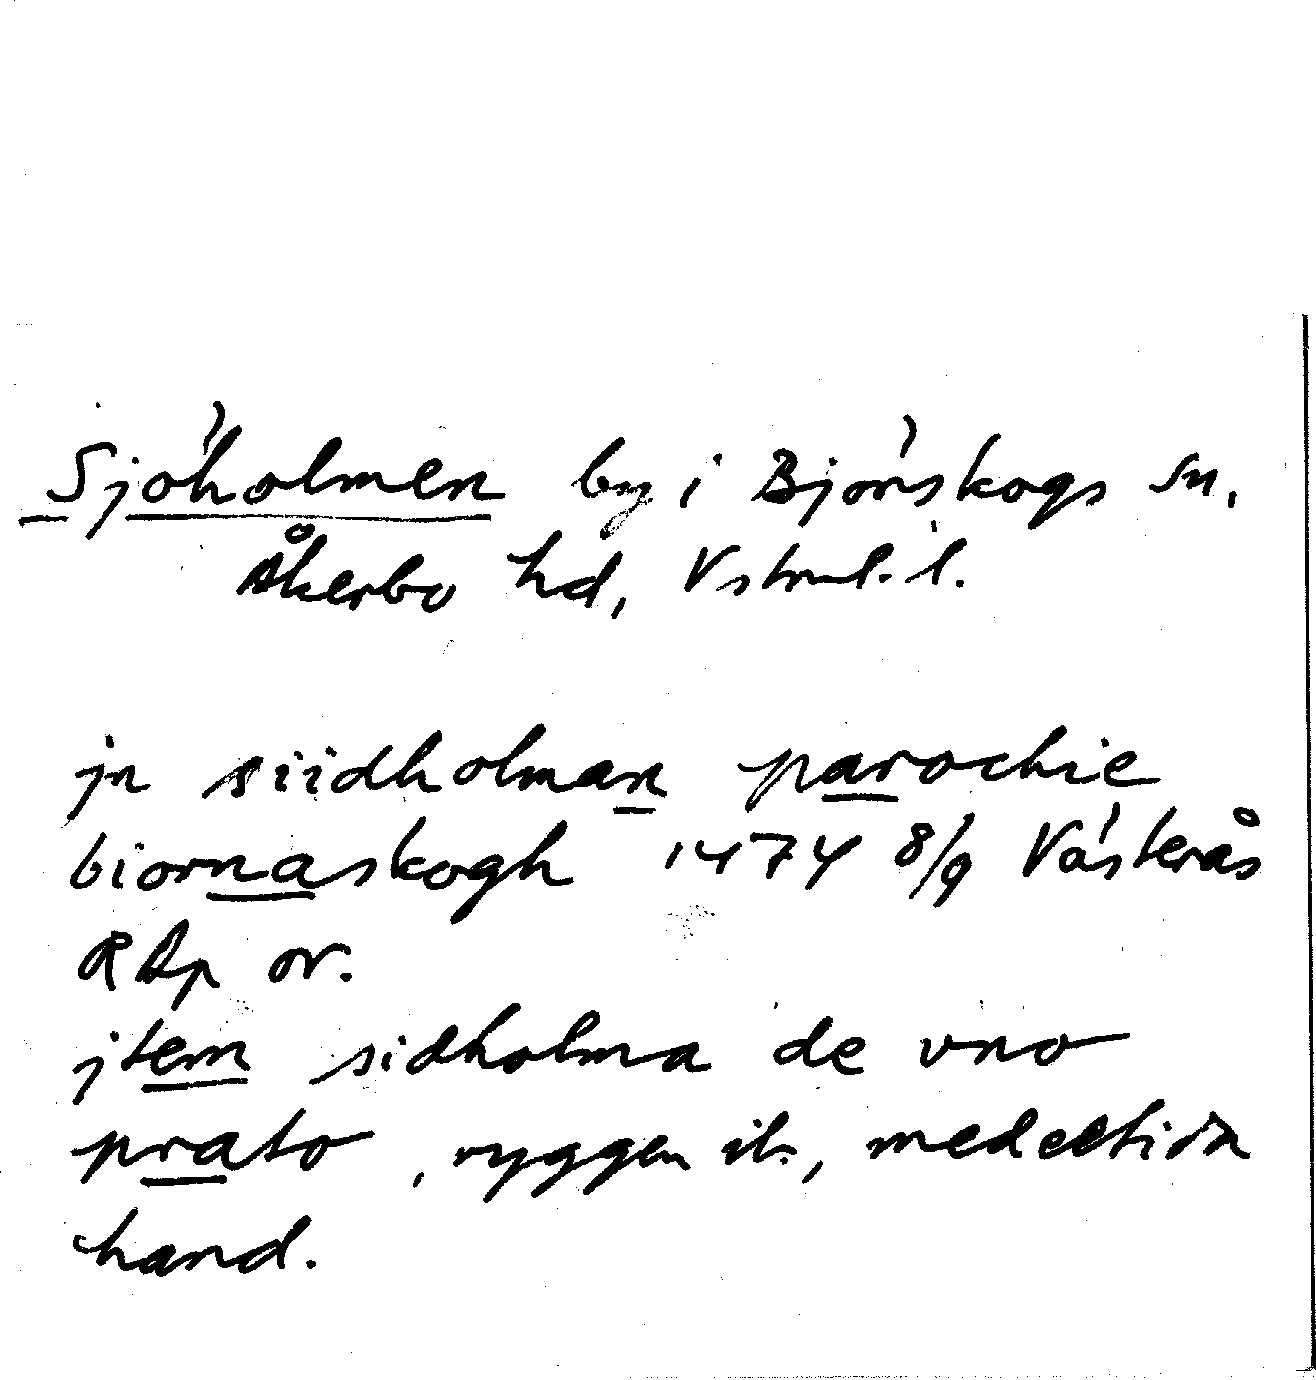 Sjöholmen by i Björskogs sn,
Åkerbo hd, Vstml. l.
jn siidholman parochie
biornaskogh 1474 8/9 Västerås
RAp or.
jtem sidholma de vno
prato, ryggen ib., medeltida
hand.